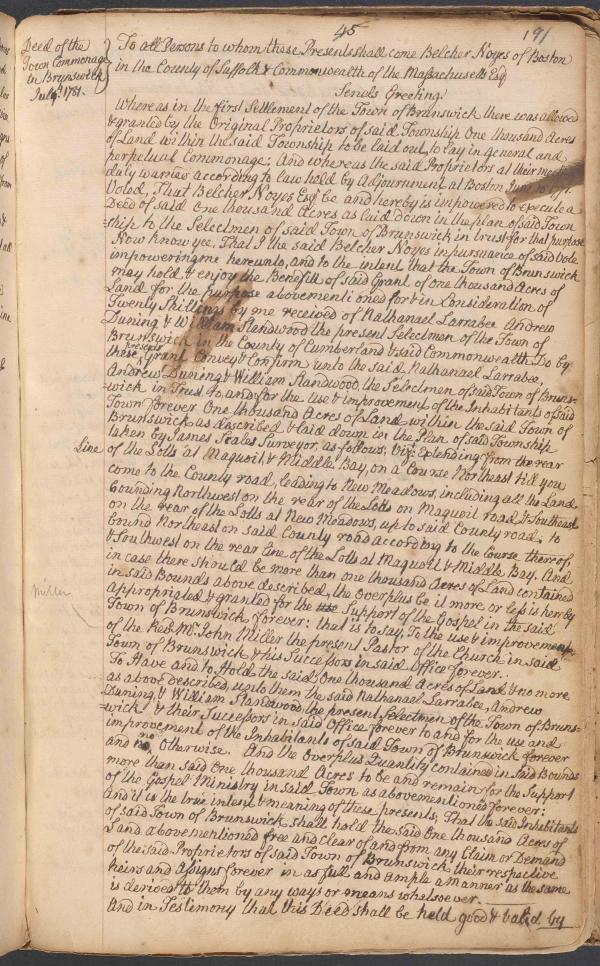 45
191
Deed of the
Town Commonage
in Brunswick
July 1781.
To all Persons to whom these Presents shall come Belcher Noyes of Boston
in the County of Suffolk & Commonwealth of the Massachusetts Esqr
Sends Greeting.
Whereas in the first Settlement of the Town of Brunswick there was allowed
& granted by the Original Proprietors of said Township One thousand Acres
of Land within the said Township to be laid out, to lay in General and
perpetual Commonage: And whereas the said Proprietors at their meeting
duly warned according to law held by Adjournment at Boston
Voted, That Belcher Noyes Esqr be and hereby is impowered to execute a
Deed of said One thousand Acres as laid down in the plan of said Town
=ship to the Selectmen of said Town of Brunswick in trust for that purpose
Now know yee, That I the said Belcher Noyes in pursuance of said Vote
impowering me hereunto, and to the intent that the Town of Brunswick
may hold & enjoy the Benefitt of said Grant of one thousand Acres of
Land for the purpose abovementioned for & in Consideration of
Twenty Shillings by me received of Nathanael Larrabee Andrew
Duning & William Standwood the present Selectmen of the Town of
Brunswick in the County of Cumberland & said Commonwealth Do by
these presents Grant Convey & Confirm unto the said Nathanael Larrabee,
Andrew Duning & William Standwood, the Selectmen of said Town of Bruns=
=wick in Trust to and for the use & improvement of the Inhabitants of said
Town forever One thousand Acres of Land within the said Town of
Brunswick as described & laid down in the Plan of said Township
taken by James Scales Surveyor, as follows, Viz: Extending from the rear
Line of the Lotts at Maquoit, & Middle Bay, on a Course Northeast til you
come to the County road, leading to New Meadows, including all the Land,
bounding Northwest on the rear of the Lotts on Maquoit road & Southeast
on the rear of the Lotts at New Meadows, up to said County road, to
bound Northeast on said County road according to the Course thereof,
& Southwest on the rear line of the Lotts at Maquoit & Middle Bay. And
in case there should be more than one thousand Acres of Land contained
in said Bounds above described, the overplus be it more or less is hereby
appropriated & granted for the Support of the Gospel in the said
Miller
Town of Brunswick forever: that is to say, To the use & improvement
of the Revd Mr. John Miller the present Pastor of the Church in said
Town of Brunswick & his Successors in said Office forever.
To Have and to Hold the said One thousand Acres of Land & no more
as above described, unto them the said Nathanael Larrabee, Andrew
Duning, & William Standwood the present Selectmen of the Town of Bruns=
=wick & their Successors in said Office forever to and for the use and
improvement of the Inhabitants of said Town of Brunswick forever
and no otherwise. And the Overplus Quantity contained in said Bounds
more than said One thousand Acres to be and remain for the Support
of the Gospel Ministry in said Town as abovementioned forever:
And it is the true intent & meaning of these presents, That the said Inhabitants
of said Town of Brunswick shall hold the said One thousand Acres of
Land abovementioned free and clear of and from any Claim or Demand
of the said Proprietors of said Town of Brunswick their respective
heirs and Assigns forever in as full and ample a manner as the same
is derived to them by any ways or means whatsoever.
And in Testimony that this Deed shall be held good & valid by